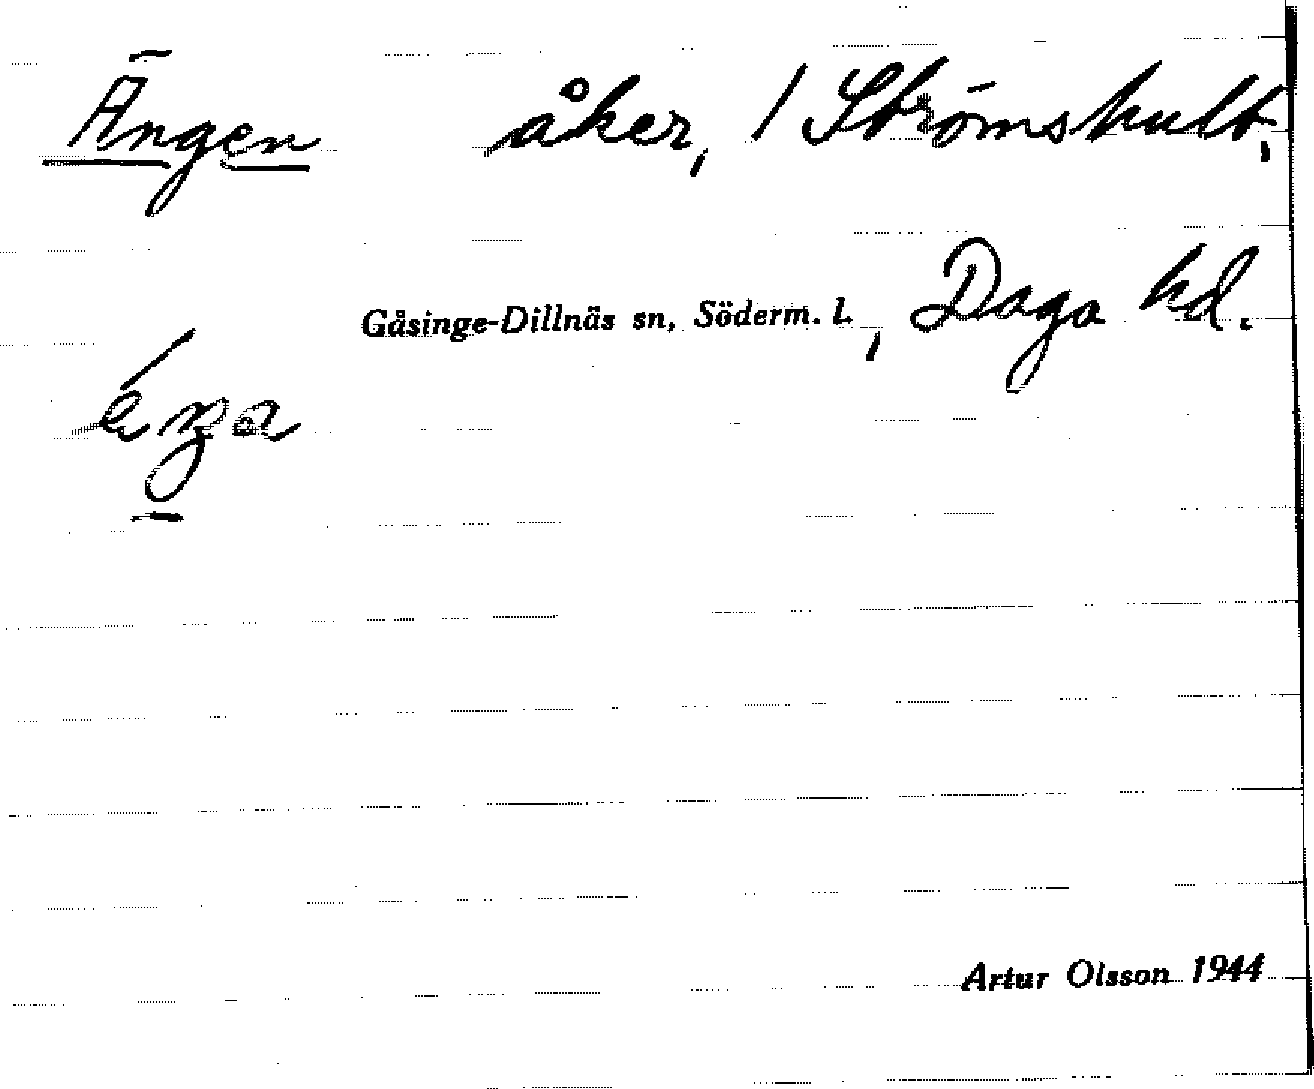 Ängen åker, / Strömshult,
Gåsinge-Dillnäs sn, Söderm. l., Daga hd.
éŋa
Artur Olsson 1944